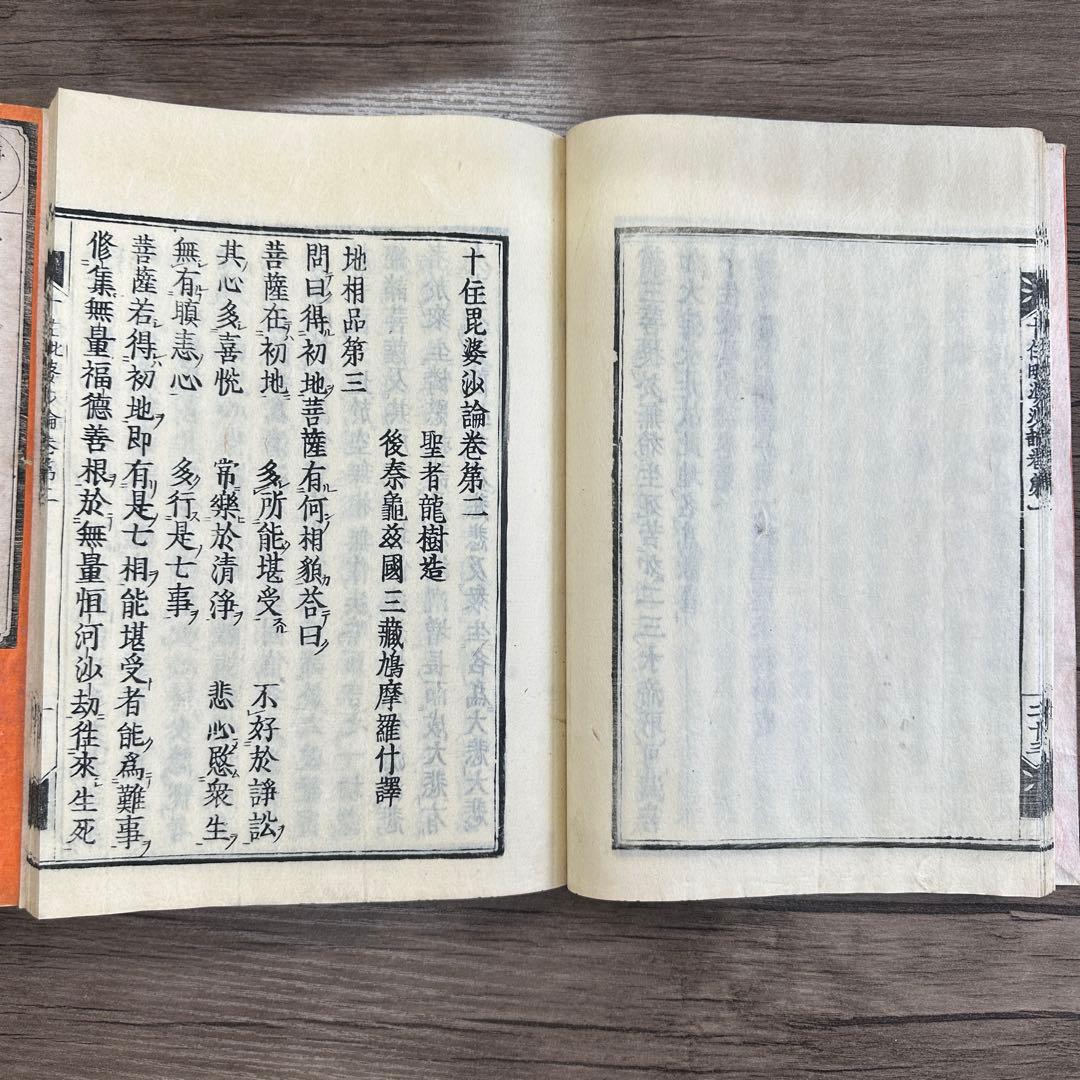 十住毘婆沙論卷第一
十住毘婆沙論卷第二
聖者龍樹造
後秦龜茲國三藏鳩摩羅什譯
地相品第三
問曰得初地菩薩有何相貌荅曰
菩薩在初地　多所能堪受　不好於諍訟
其心多喜悅　常樂於清淨　悲心愍衆生
無有瞋恚心　多行是七事
菩薩若得初地即有是七相能堪受者能爲難事
修集無量福德善根於無量恒河沙劫往來生死
十住毘婆沙論卷第二